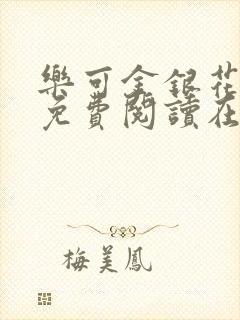 樂可金銀花
免費閱讀在
梅美鳳